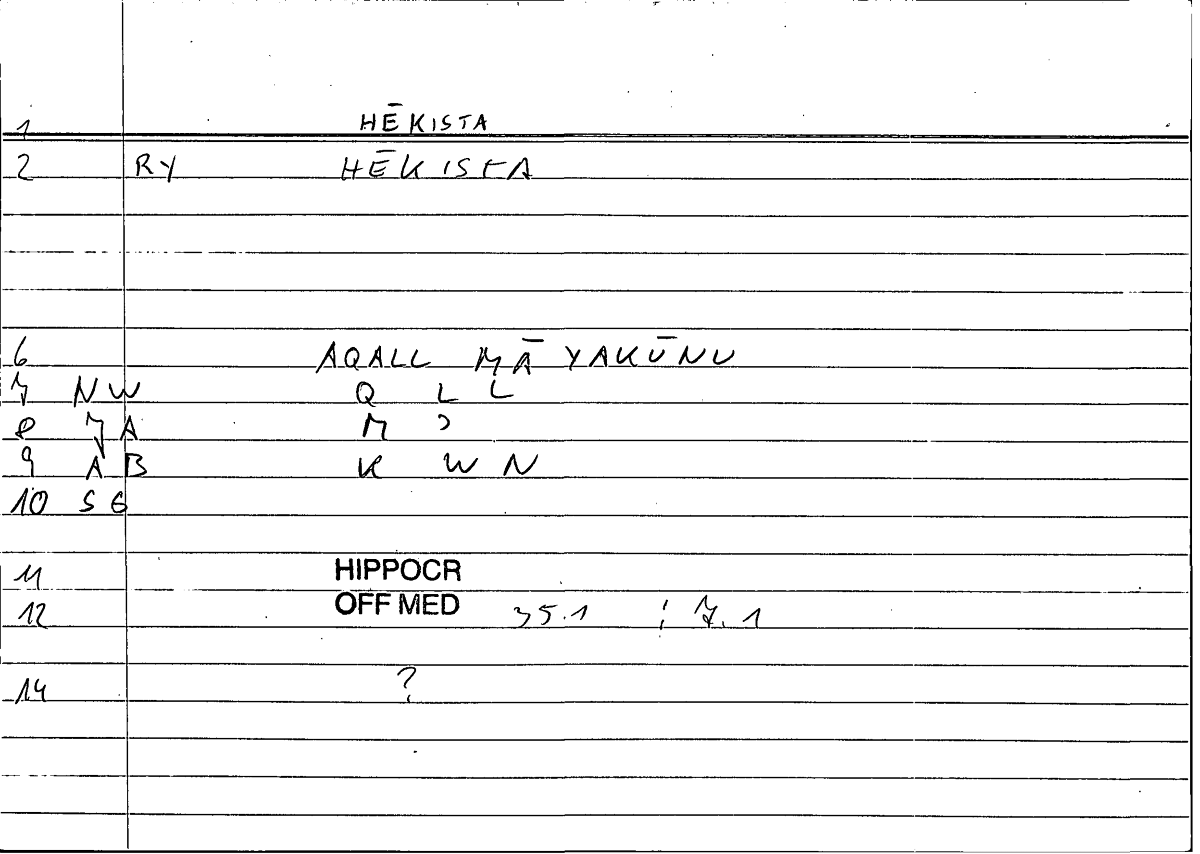 1 HĒKISTA
2 RY HĒKISTA
6 AQALL MĀ YAKŪNU
7 NW Q L L
8 JA M ʾ
9 AB K W N
10 SG
11 HIPPOCR
12 OFF MED 35.1 ; 7.1
14 ?